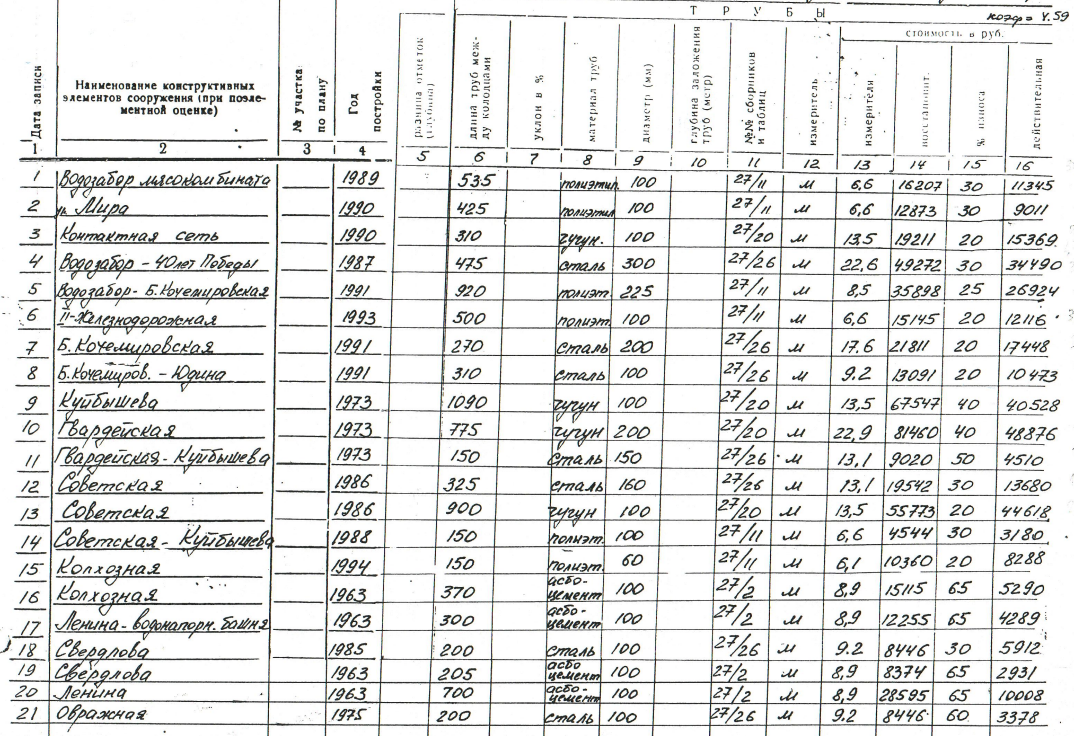 Т Р У Б Ы
коэф = 4.59
стоимость в руб.
Дата записи
Наименование конструктивных элементов сооружения (при поэлементной оценке)
№ участка по плану
Год постройки
разница отметок (глубина)
длина труб между колодцами
уклон в %
материал труб
диаметр (мм)
глубина заложения труб (метр)
№№ сборников и таблиц
измеритель
измерителя
восстановит.
% износа
действительная
1 2 3 4 5 6 7 8 9 10 11 12 13 14 15 16
1 Водозабор мясокомбината 1989 535 полиэтил. 100 27/11 м 6,6 16207 30 11345
2 ул. Мира 1990 425 полиэтил 100 27/11 м 6,6 12873 30 9011
3 Контактная сеть 1990 310 чугун. 100 27/20 м 13,5 19211 20 15369
4 Водозабор - 40 лет Победы 1987 475 сталь 300 27/26 м 22,6 49272 30 34490
5 Водозабор - Б. Кочемировская 1991 920 полиэт. 225 27/11 м 8,5 35898 25 26924
6 II-Железнодорожная 1993 500 полиэт. 100 27/11 м 6,6 15145 20 12116
7 Б. Кочемировская 1991 270 сталь 200 27/26 м 17.6 21811 20 17448
8 Б. Кочемиров. - Юдина 1991 310 сталь 100 27/26 м 9.2 13091 20 10473
9 Куйбышева 1973 1090 чугун 100 27/20 м 13,5 67547 40 40528
10 Гвардейская 1973 775 чугун 200 27/20 м 22,9 81460 40 48876
11 Гвардейская - Куйбышева 1973 150 сталь 150 27/26 м 13,1 9020 50 4510
12 Советская 1986 325 сталь 160 27/26 м 13,1 19542 30 13680
13 Советская 1986 900 чугун 100 27/20 м 13.5 55773 20 44618
14 Советская - Куйбышева 1988 150 полиэт. 100 27/11 м 6,6 4544 30 3180
15 Колхозная 1994 150 полиэт. 60 27/11 м 6,1 10360 20 8288
16 Колхозная 1963 370 асбо-цемент 100 27/2 м 8,9 15115 65 5290
17 Ленина - водонапорн. башня 1963 300 асбо-цемент 100 27/2 м 8,9 12255 65 4289
18 Свердлова 1985 200 сталь 100 27/26 м 9.2 8446 30 5912
19 Свердлова 1963 205 асбо цемент 100 27/2 м 8,9 8374 65 2931
20 Ленина 1963 700 асбо-цемент 100 27/2 м 8,9 28595 65 10008
21 Овражная 1975 200 сталь 100 27/26 м 9.2 8446 60 3378